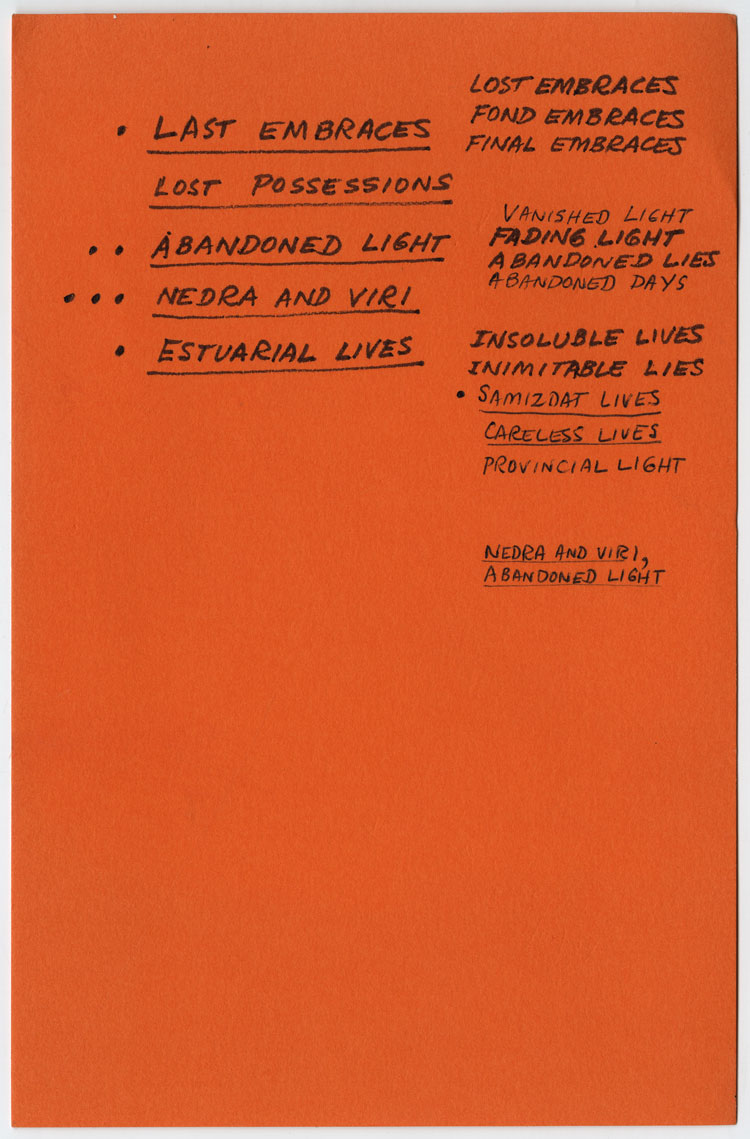 • LAST EMBRACES
LOST POSSESSIONS
•• ABANDONED LIGHT
••• NEDRA AND VIRI
• ESTUARIAL LIVES
LOST EMBRACES
FOND EMBRACES
FINAL EMBRACES
VANISHED LIGHT
FADING LIGHT
ABANDONED LIES
ABANDONED DAYS
INSOLUBLE LIVES
INIMITABLE LIES
• SAMIZDAT LIVES
CARELESS LIVES
PROVINCIAL LIGHT
NEDRA AND VIRI,
ABANDONED LIGHT